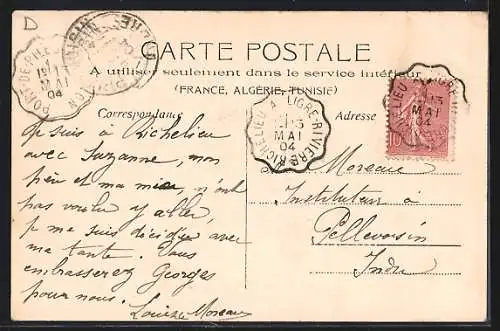 D
CARTE POSTALE
A utiliser seulement dans le service intérieur
(FRANCE, ALGÉRIE, TUNISIE)
Correspondance
Adresse
PORT-DE-PILE
11
04
RICHELIEU A LIGRE-RIVIERE
MAI
04
LIEU
MAI
04
10
Je suis à Richelieu
avec Suzanne, mon
père et ma mère n'ont
pas voulu y aller,
je me suis décidée avec
ma tante. Vous
embrasserez Georges
pour nous.
Louise Moreau
Moreau
Instituteur à
Pellevoisin
Indre